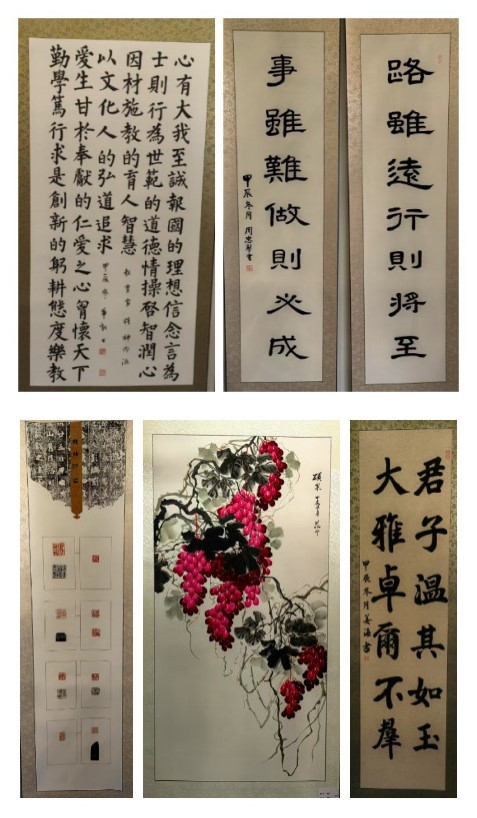 心有大我至誠報國的理想信念言為
士則行為世範的道德情操啓智潤心
因材施教的育人智慧
勤學篤行求是創新的躬耕態度樂教
愛生甘於奉獻的仁愛之心胷懷天下
以文化人的弘道追求
甲辰冬
路雖遠行則將至
事雖難做則必成
甲辰冬月
碩果
君子溫其如玉
大雅卓爾不羣
甲辰冬月姜海書